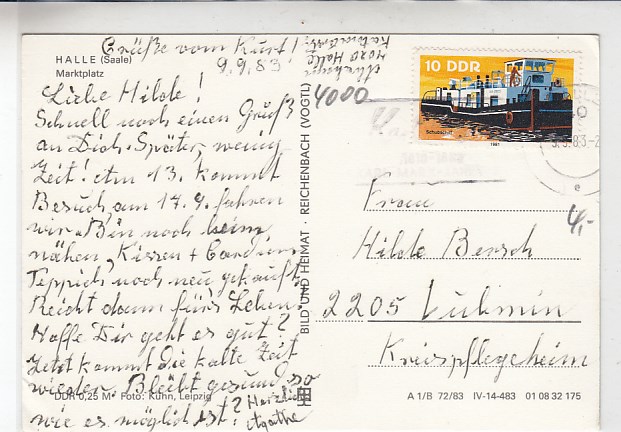 Grüße vom Kurt!
9.9.83
HALLE (Saale)
Marktplatz
4020 Halle
4000
Liebe Hilde!
Schnell noch einen Gruß
an Dich. Später wenig
Zeit! Am 13. kommt
Besuch, am 17.9. fahren
wir. Bin noch beim
nähen, Kissen + Gardinen
Teppich noch neu gekauft.
Reicht dann fürs Leben.
Hoffe Dir geht es gut?
Jetzt kommt die kalte Zeit
wieder. Bleibt gesund, so
wie es möglich ist? Herzlich
Agathe
DDR 0,25 M · Foto: Kühn, Leipzig
BILD UND HEIMAT · REICHENBACH (VOGTL)
10 DDR
Schubschiff
1981
Frau
4,-
Hilde Bersch
2205 Lubmin
Kreispflegeheim
A 1/B 72/83 IV-14-483 01 08 32 175